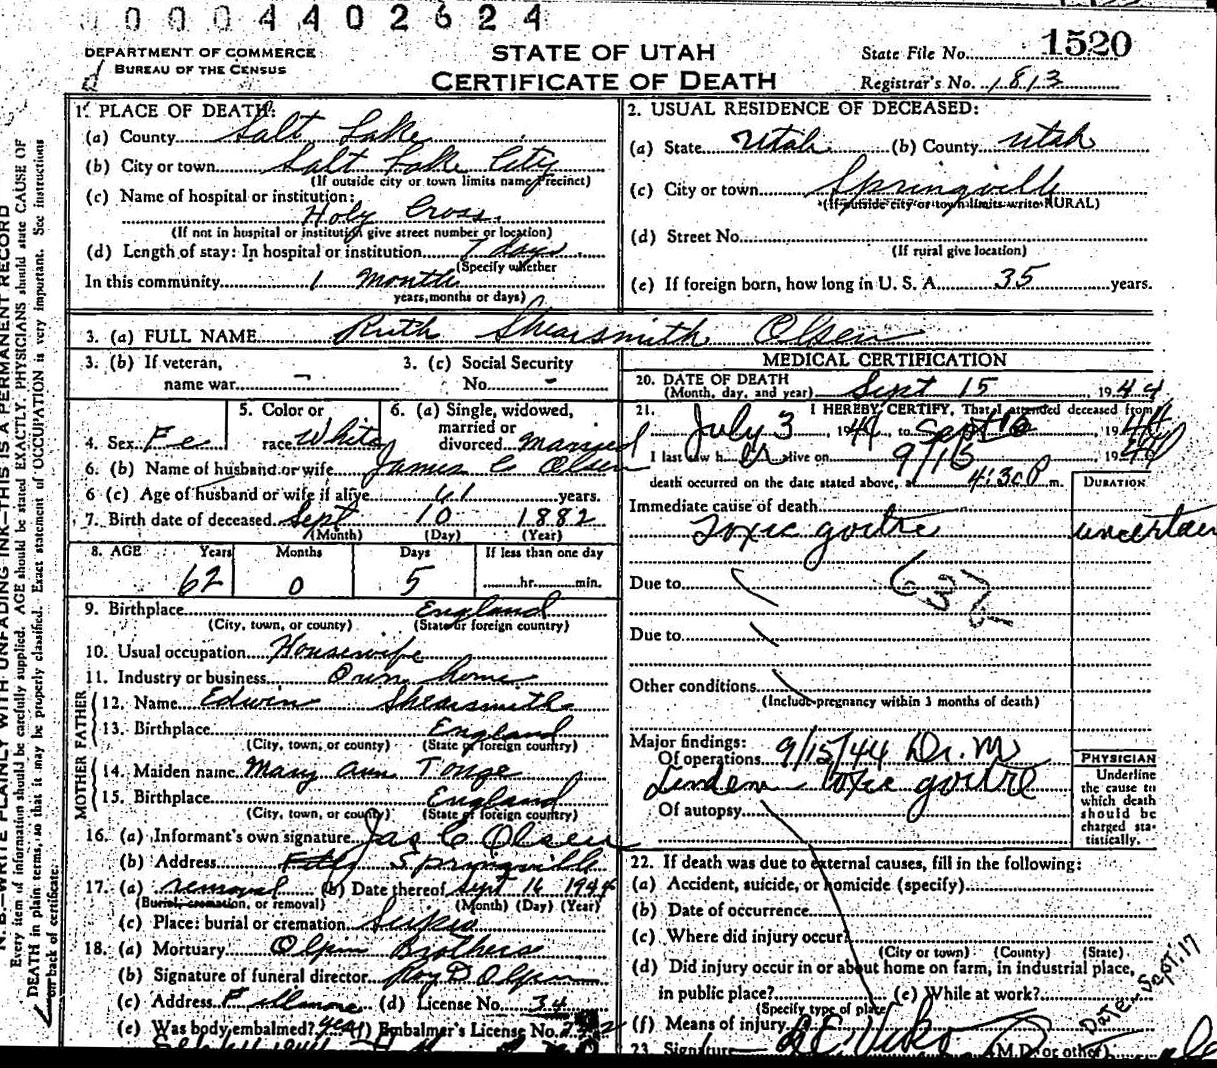 0004402624
DEPARTMENT OF COMMERCE
BUREAU OF THE CENSUS
STATE OF UTAH
CERTIFICATE OF DEATH
State File No. 1520
Registrar's No. 1813
N. B.—WRITE PLAINLY WITH UNFADING INK—THIS IS A PERMANENT RECORD
Every item of information should be carefully supplied. AGE should be stated EXACTLY. PHYSICIANS should state CAUSE OF
DEATH in plain terms, so that it may be properly classified. Exact statement of OCCUPATION is very important. See instructions
on back of certificate.
1. PLACE OF DEATH:
(a) County Salt Lake
(b) City or town Salt Lake City
(If outside city or town limits name Precinct)
(c) Name of hospital or institution:
Holy Cross
(If not in hospital or institution give street number or location)
(d) Length of stay: In hospital or institution 7 days
(Specify whether
In this community 1 month
years, months or days)
2. USUAL RESIDENCE OF DECEASED:
(a) State Utah (b) County Utah
(c) City or town Springville
(If outside city or town limits write RURAL)
(d) Street No.
(If rural give location)
(e) If foreign born, how long in U. S. A. 35 years.
3. (a) FULL NAME Ruth Shearsmith Olsen
3. (b) If veteran,
name war -
3. (c) Social Security
No. -
4. Sex Fe
5. Color or
race White
6. (a) Single, widowed,
married or
divorced Married
6. (b) Name of husband or wife James C Olsen
6 (c) Age of husband or wife if alive 61 years.
7. Birth date of deceased Sept 10 1882
(Month) (Day) (Year)
8. AGE Years Months Days If less than one day
62 0 5 hr. min.
9. Birthplace England
(City, town, or county) (State or foreign country)
10. Usual occupation Housewife
11. Industry or business Own home
FATHER
12. Name Edwin Shearsmith
13. Birthplace England
(City, town, or county) (State or foreign country)
MOTHER
14. Maiden name Mary Ann Tonge
15. Birthplace England
(City, town, or county) (State or foreign country)
16. (a) Informant's own signature Jas C Olsen
(b) Address Springville
17. (a) removal (b) Date thereof Sept 16 1944
(Burial, cremation, or removal) (Month) (Day) (Year)
(c) Place: burial or cremation
18. (a) Mortuary Olpin Brothers
(b) Signature of funeral director Roy D Olpin
(c) Address Fillmore (d) License No. 34
(e) Was body embalmed? yes (f) Embalmer's License No.
MEDICAL CERTIFICATION
20. DATE OF DEATH
(Month, day, and year) Sept 15, 1944
21. I HEREBY CERTIFY, That I attended deceased from
July 3, 1944, to Sept 16, 1944
I last saw her alive on 9/15, 1944
death occurred on the date stated above, at 4:30 P m.
DURATION
Immediate cause of death
Toxic goitre uncertain
Due to
Due to
Other conditions
(Include pregnancy within 3 months of death)
Major findings:
Of operations 9/15/44 Dr. M
Lindem - toxic goitre
Of autopsy
PHYSICIAN
Underline
the cause to
which death
should be
charged sta-
tistically.
22. If death was due to external causes, fill in the following:
(a) Accident, suicide, or homicide (specify)
(b) Date of occurrence
(c) Where did injury occur?
(City or town) (County) (State)
(d) Did injury occur in or about home on farm, in industrial place,
in public place? (e) While at work?
(Specify type of place)
(f) Means of injury
23. Signature (M.D. or other)
Date Sept. 17